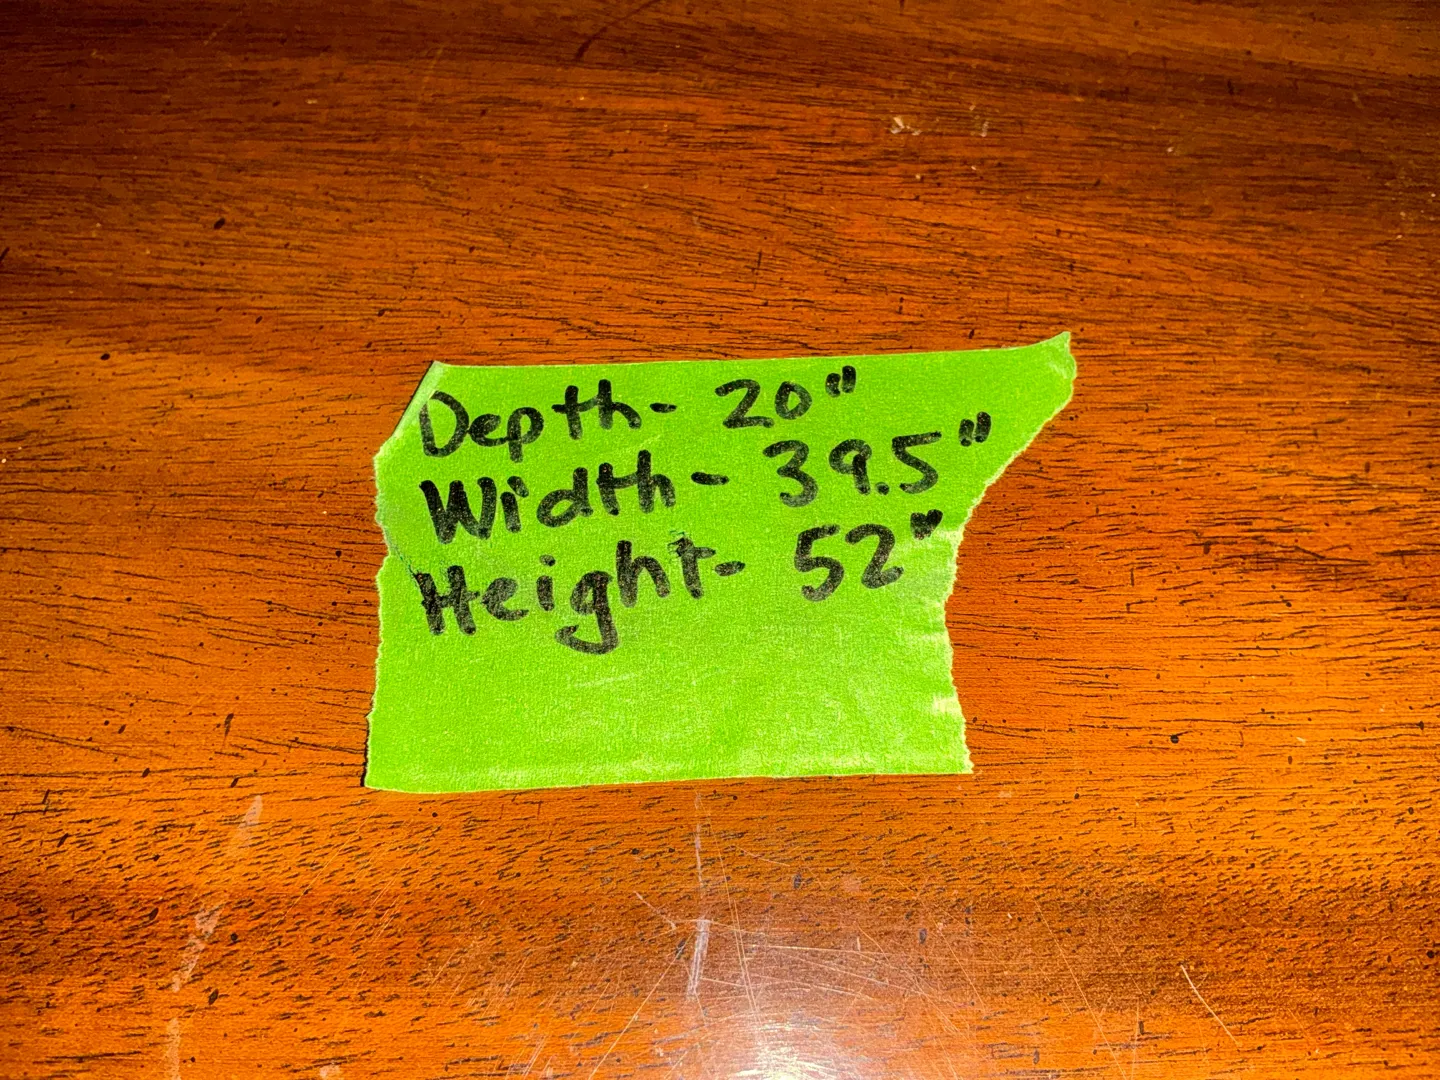 Depth- 20"
Width- 39.5"
Height- 52"